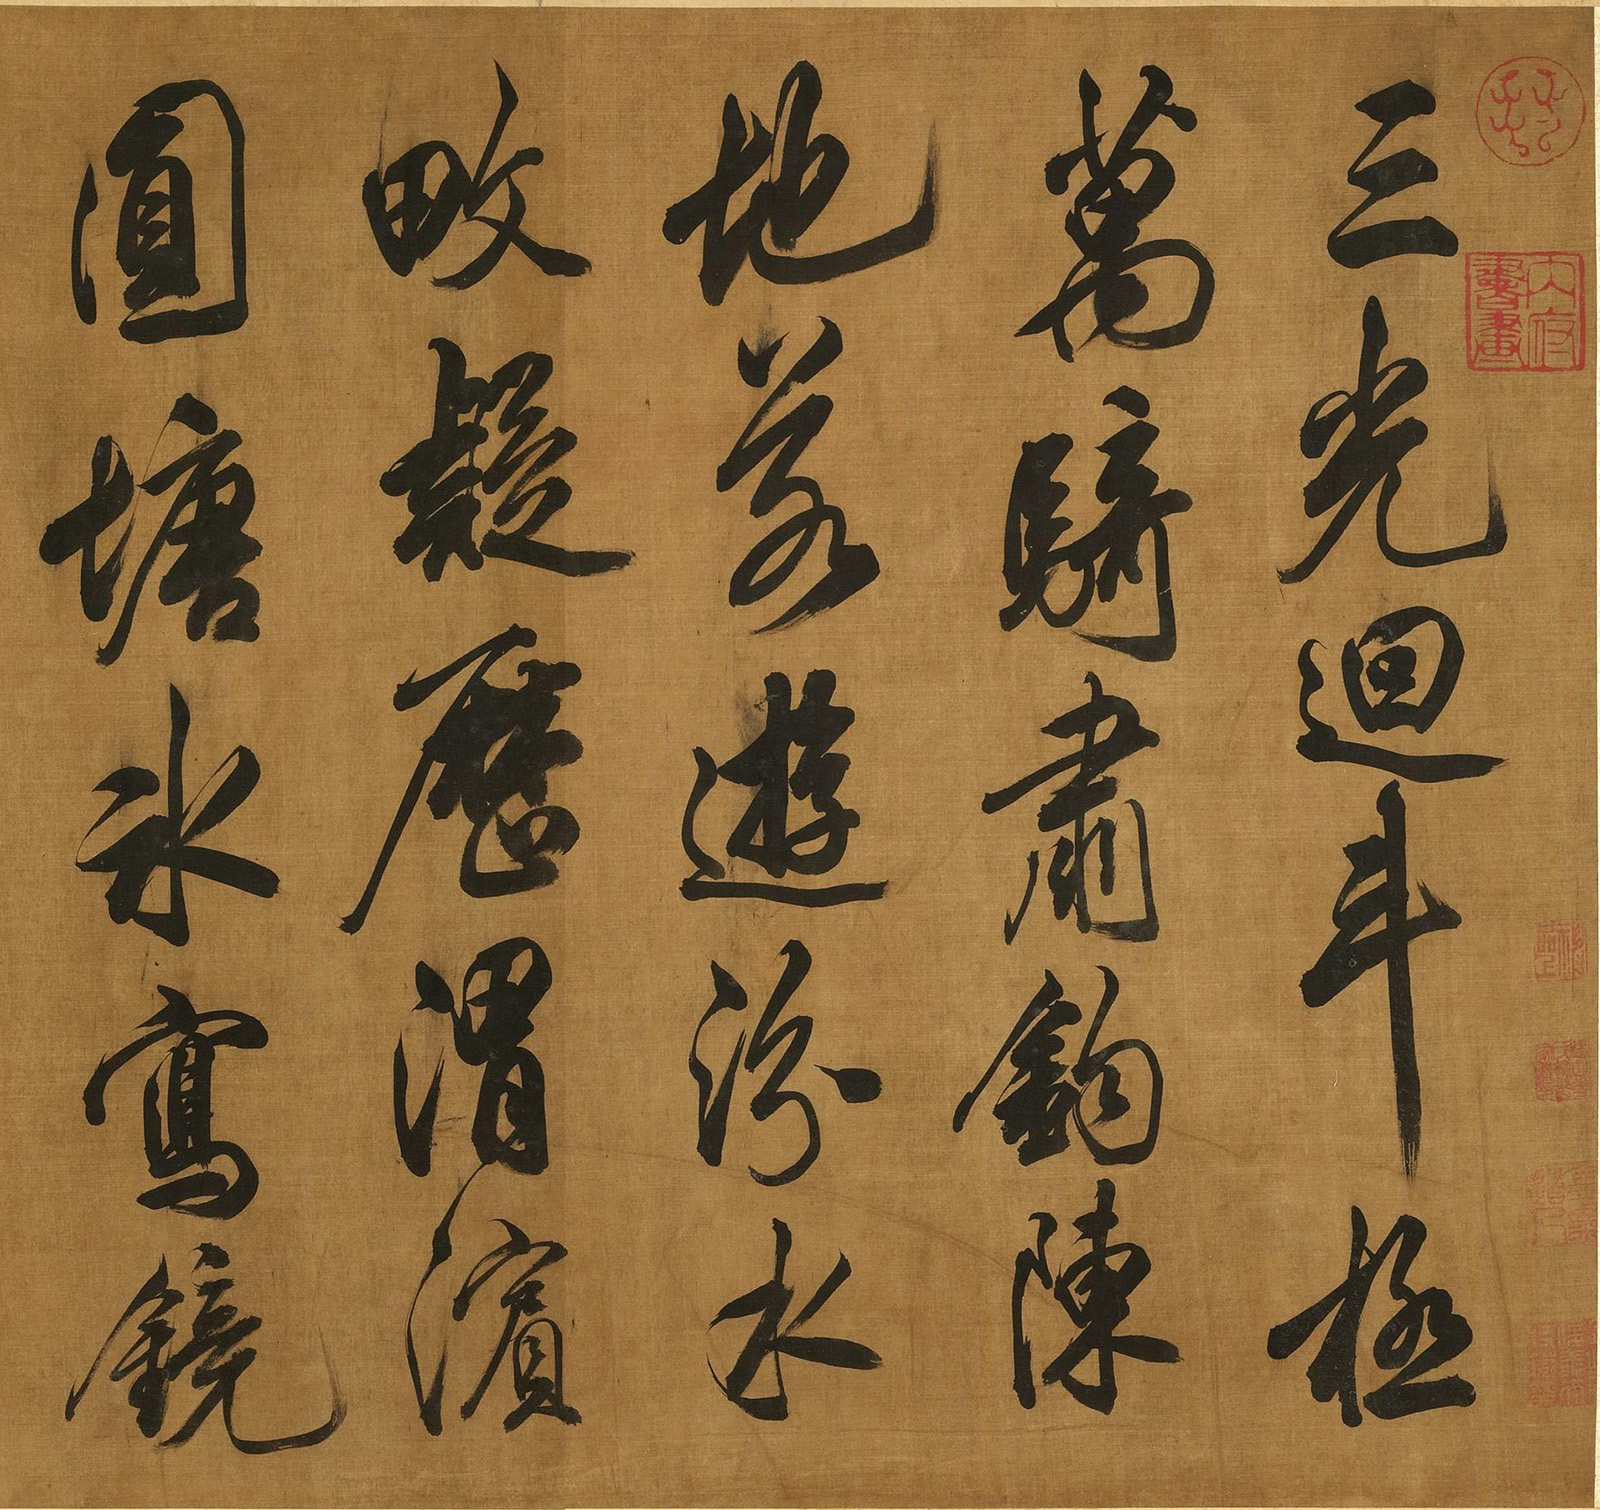 三光迴斗極
萬騎肅鉤陳
地若遊汾水
畋疑歷渭濱
圓塘冰寫鏡
内府書畫